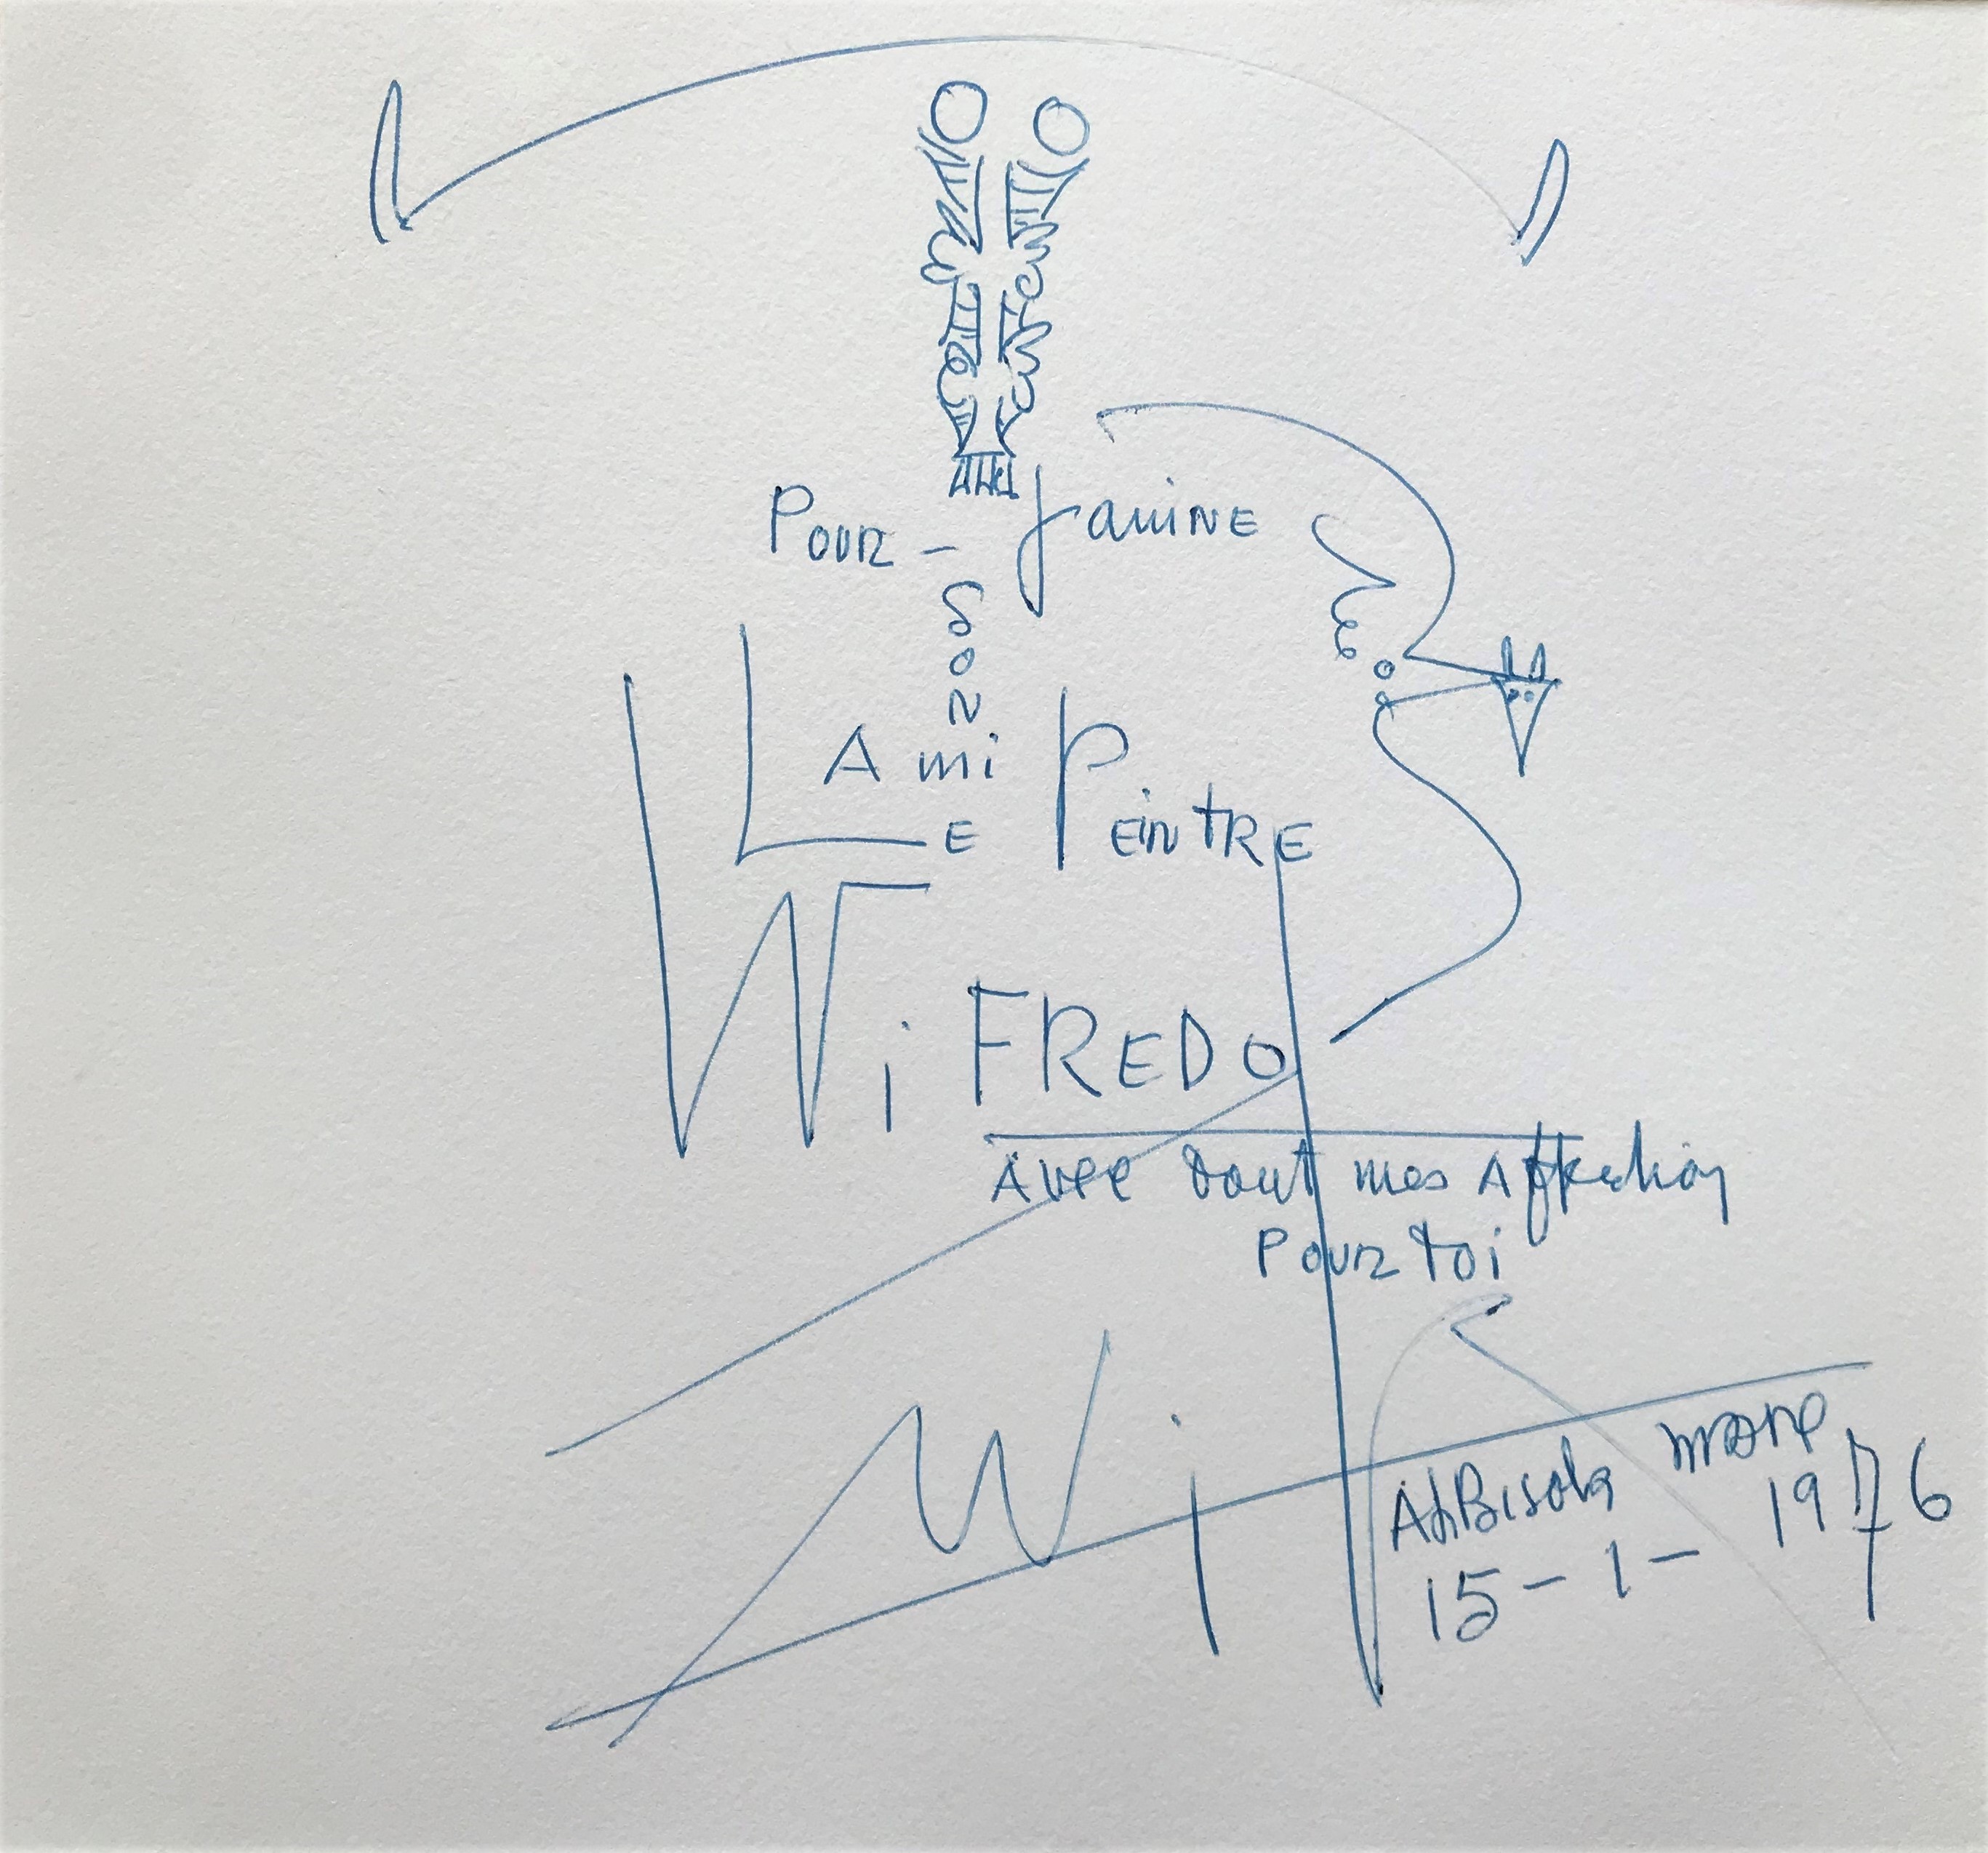 Pour - Janine
Son
Ami
Le Peintre
WiFREDO
Avec tout mes Affection
Pour toi
Wi
AlBisola mare
15-1-1976